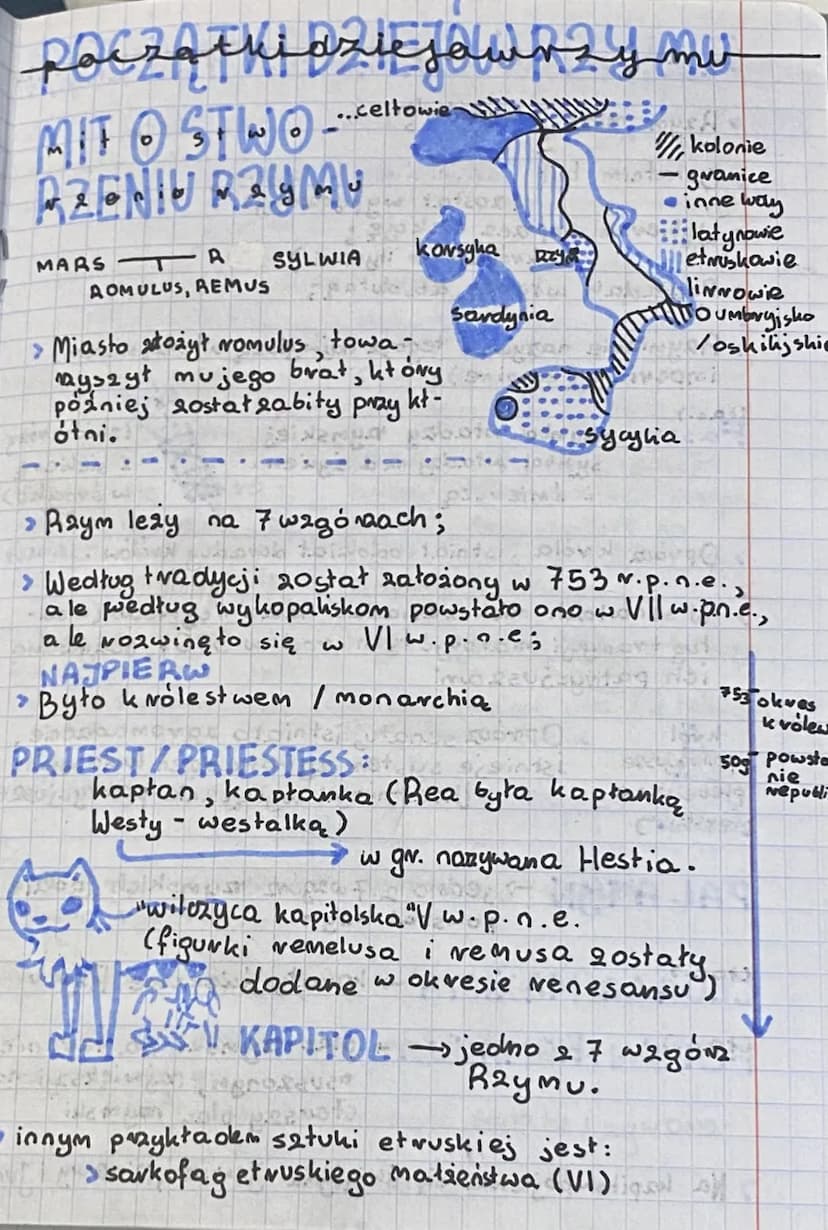 początki dziejów rzymu
MIT O STWO-
RZENIU RZYMU
...celtowie
kolonie
granice
inne wody
latynowie
etruskowie
Korsyka
Rzym
Sardynia
oumbryjsko
/oskijskie
sycylia
MARS R SYLWIA
ROMULUS, REMUS
> Miasto złożył romulus, towa-
rzyszył mu jego brat, który
później został zabity przy kł-
ótni.
> Rzym leży na 7 wzgórzach;
> Według tradycji został założony w 753 r.p.n.e.,
ale według wykopaliskom powstało ono w VII w.p.n.e.,
ale rozwinęło się w VI w.p.n.e;
NAJPIERW
> Było królestwem / monarchią
753 okres
królew
509 powsta
nie
republi
PRIEST/PRIESTESS:
kapłan, kapłanka (Rea była kapłanką
Westy - westalką)
w gr. nazywana Hestia.
"wilczyca kapitolska" V w.p.n.e.
(figurki remelusa i remusa zostały
dodane w okresie renesansu)
KAPITOL → jedno z 7 wzgórz
Rzymu.
innym przykładem sztuki etruskiej jest:
> sarkofag etruskiego małżeństwa (VI)